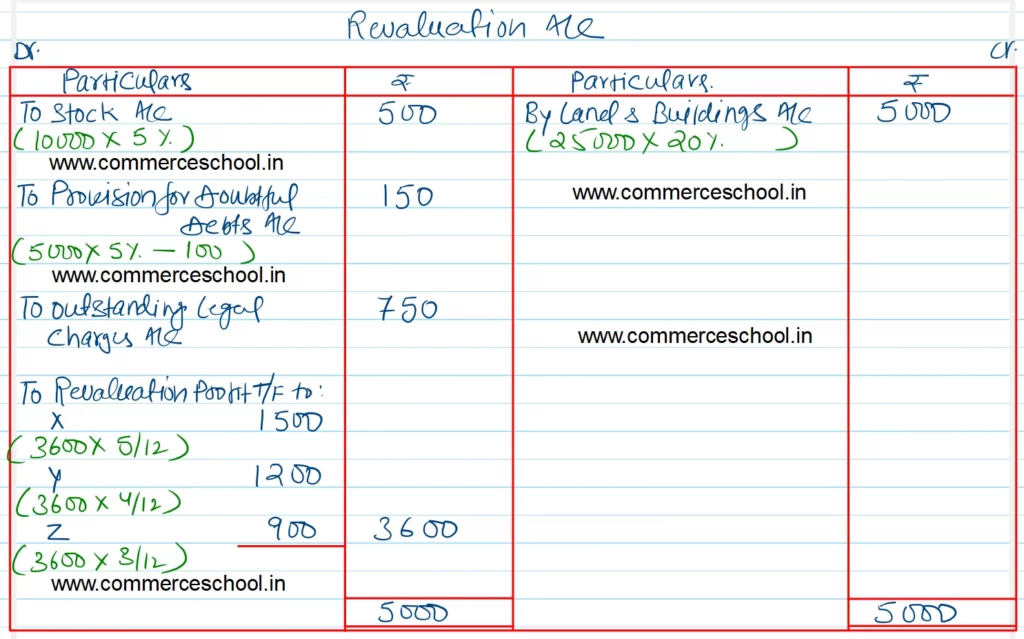 Revaluation A/c
Dr. Cr.
Particulars ₹ Particulars. ₹
To Stock A/c 500 By Land & Buildings A/c 5000
(10000 X 5 %.) (25000 X 20%. )
www.commerceschool.in
To Provision for Doubtful 150 www.commerceschool.in
Debts A/c
(5000 X 5%. - 100 )
www.commerceschool.in
To Outstanding Legal 750
Charges A/c www.commerceschool.in
To Revaluation Profit T/F to:
X 1500
(3600 X 5/12)
Y 1200
(3600 X 4/12)
Z 900 3600
(3600 X 3/12)
www.commerceschool.in
5000 5000